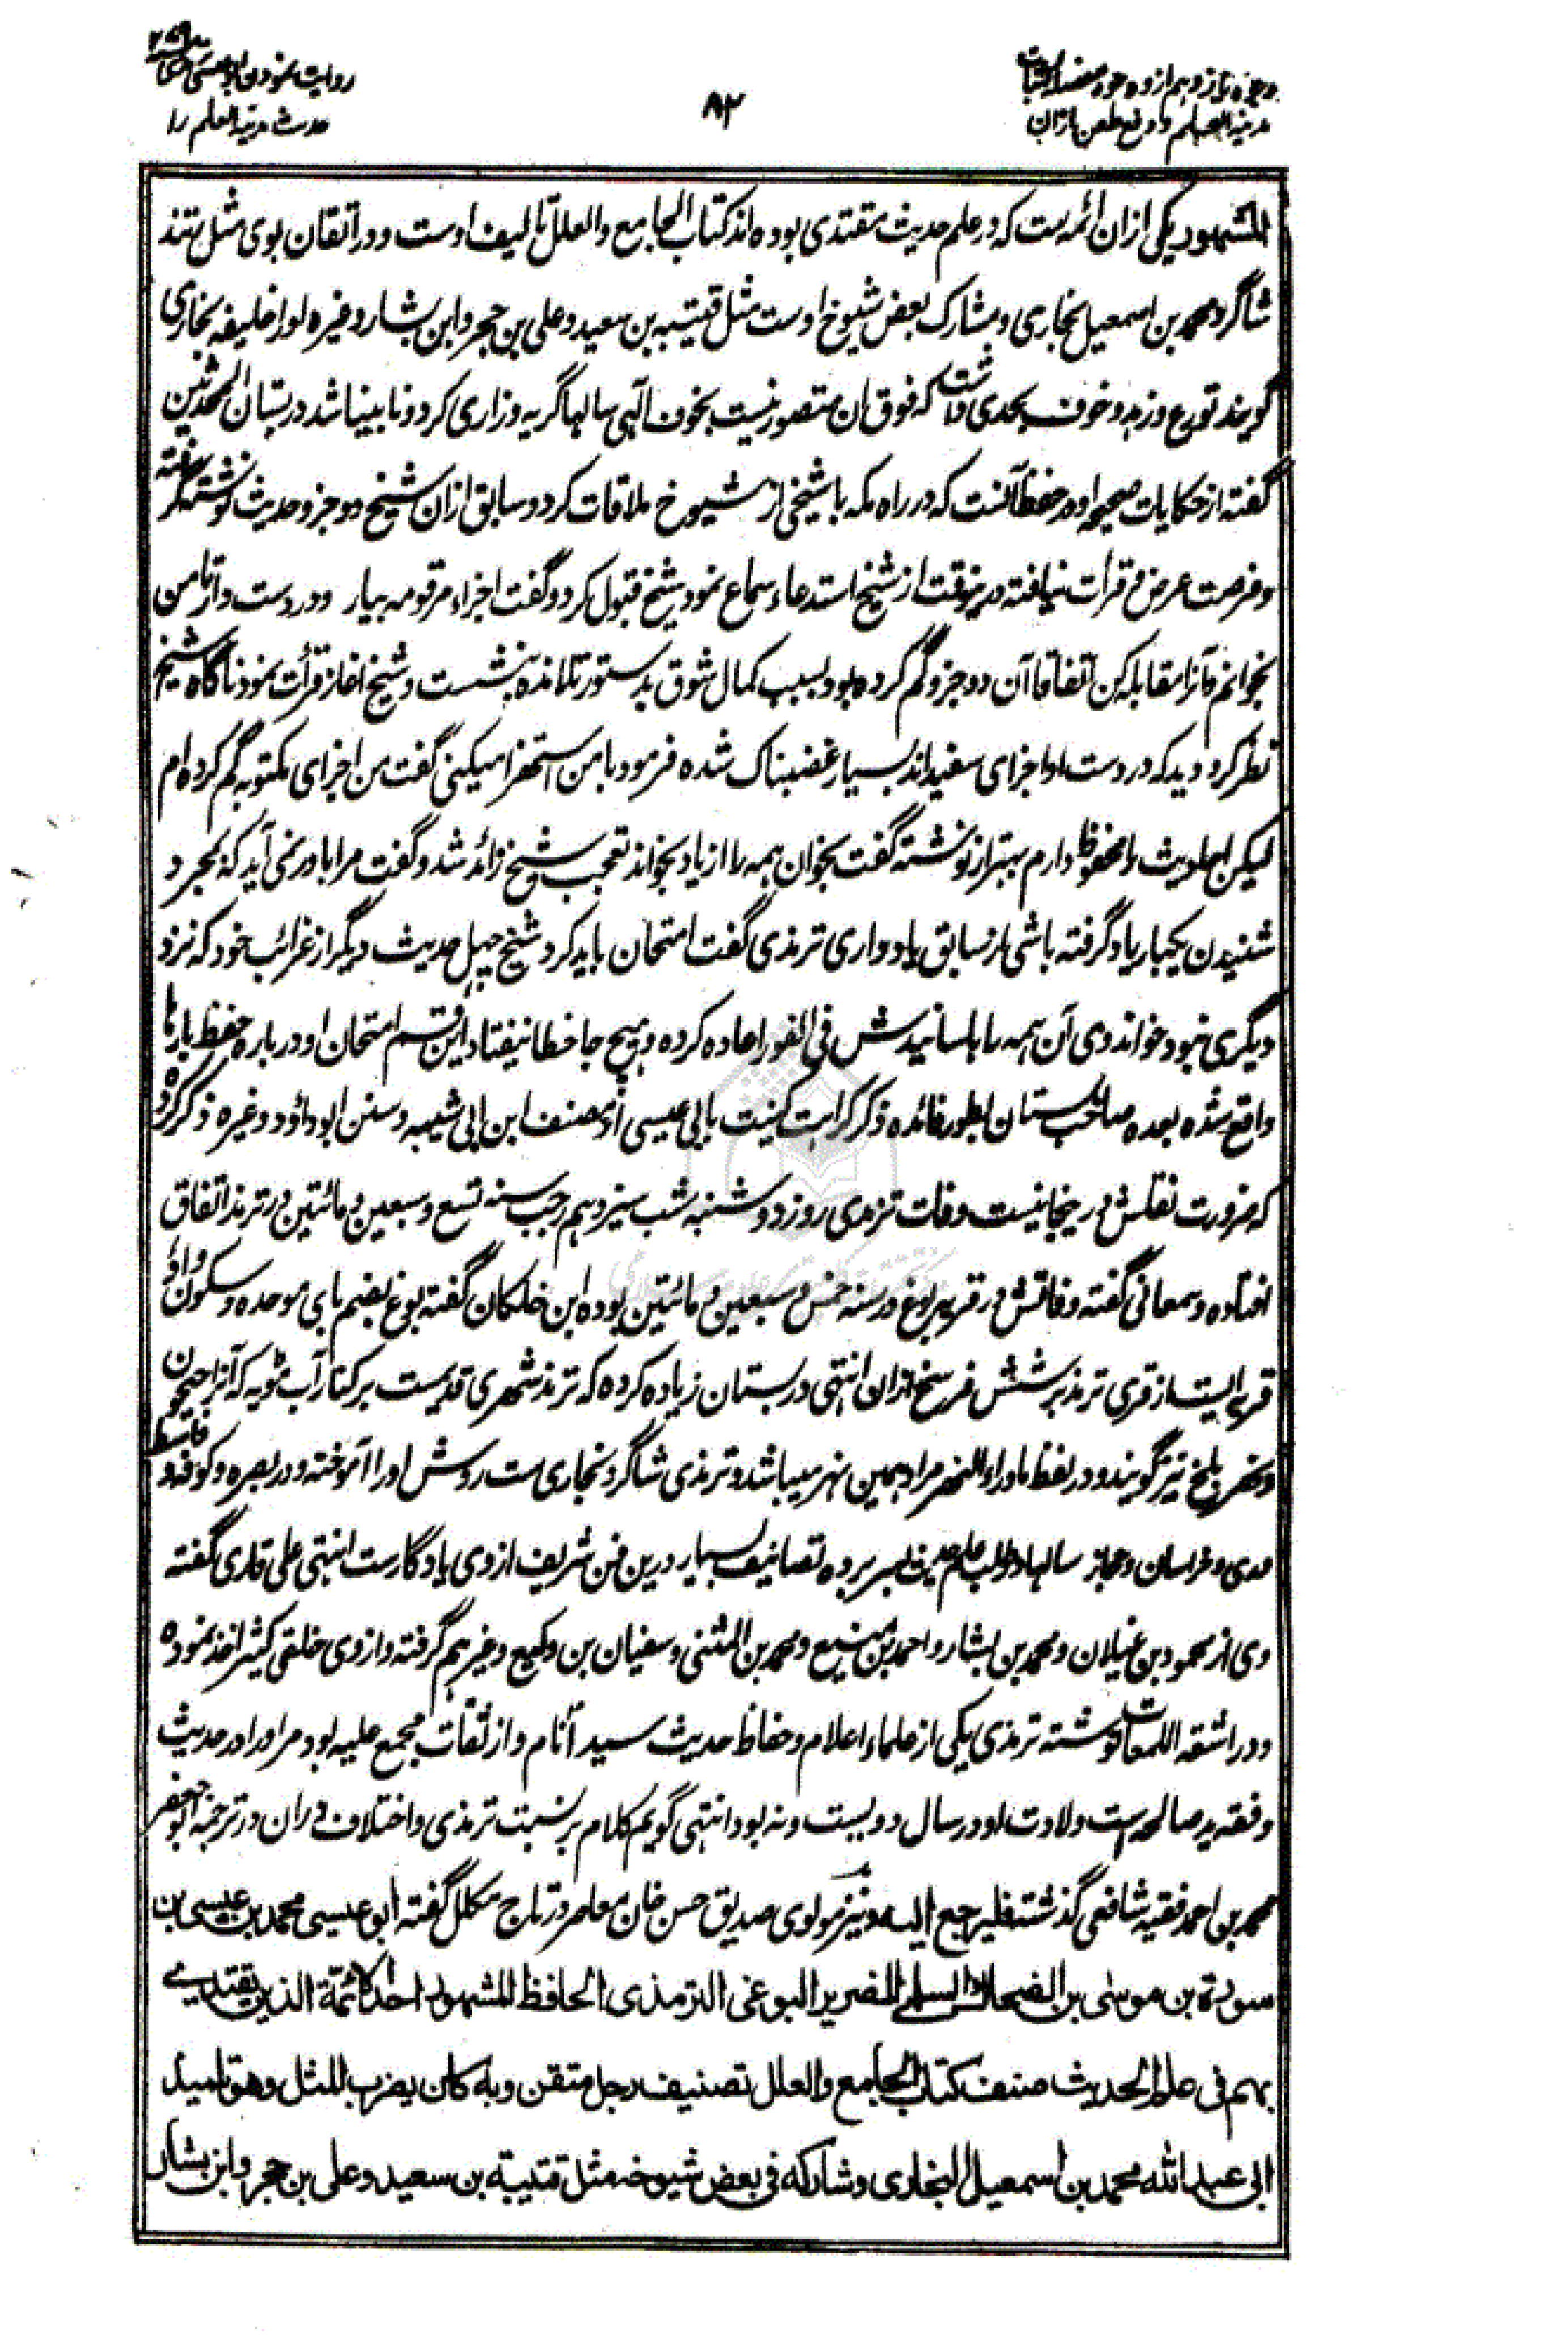 وجه پانزدهم از وجوه مفصله اثبات
مدینة العلم و دفع طعن بازان
۸۲
روایت نمودن ابو عیسی ترمذی
حدیث مدینة العلم را
المشهور یکی ازان ائمه ست که در علم حدیث مقتدی بوده اند کتاب الجامع والعلل تالیف اوست و در اتقان بوی مثل زنند
شاگرد محمد بن اسمعیل بخاری و مشارک بعض شیوخ اوست مثل قتیبه بن سعید و علی بن حجر و ابن بشار و غیره اورا خلیفه بخاری
گویند تورع و زهد و خوف بحدی داشت که فوق ان متصور نیست بخوف الهی سالها گریه و زاری کرد و نابینا شد در بستان المحدثین
گفته از حکایات صحیحه او در حفظ آنست که در راه مکه با شیخی از شیوخ ملاقات کرد و سابق ازان شیخ دو جزو حدیث نوشته گرفته
و فرصت عرض و قرات نیافته درینوقت از شیخ استدعاء سماع نمود شیخ قبول کرد و گفت اجزاء مرقومه بیار و در دست دار تا من
بخوانم و آنرا مقابله کن اتفاقا آن دو جزو گم کرده بود بسبب کمال شوق بدستور تلامذه بنشست و شیخ اغاز قرأت نمود ناگاه شیخ
نظر کرد و دید که در دست او اجزای سفید اند بسیار غضبناک شده فرمود با من استهزا میکنی گفت من اجزای مکتوبه گم کرده ام
لیکن احادیث را محفوظ دارم بهتر از نوشته گفت بخوان همه را از یاد بخواند تعجب شیخ زائد شد و گفت مرا باور نمی آید که بمجرد
شنیدن یکبار یاد گرفته باشی از سابق یاد داری ترمذی گفت امتحان باید کرد شیخ چهل حدیث دیگر از غرائب خود که نزد
دیگری نبود خواند وی آن همه را باسانیدش فی الفور اعاده کرده و هیچ جا خطا نیفتاد این قسم امتحان او در باره حفظ بارها
واقع شده بعده صاحب بستان بطور فائده ذکر کراهت کنیت بابی عیسی از مصنف ابن ابی شیبه و سنن ابو داؤد و غیره ذکر کرده
که ضرورت نقلش درینجا نیست وفات ترمذی روز دوشنبه شب سیزدهم رجب سنه تسع و سبعین و مائتین در ترمذ اتفاق
افتاده و سمعانی گفته وفاتش در قریه بوغ در سنه خمس و سبعین و مائتین بوده ابن خلکان گفته بوغ بضم بای موحده و سکون واؤ
قریه ایست از قری ترمذ بر شش فرسخ ازان انتهی در بستان زیاده کرده که ترمذ شهری قدیمست بر کنار آب مویه که آنرا جیحون
و نهر بلخ نیز گویند و در لفظ ماوراء النهر مراد همین نهر میباشد و ترمذی شاگرد بخاری ست روش او را آموخته و در بصره و کوفه و واسط
و ری و خراسان و حجاز سالها در طلب علم حدیث بسر برده تصانیف بسیار درین فن شریف از وی یادگارست انتهی علی قاری گفته
وی از محمود بن غیلان و محمد بن بشار و احمد بن منیع و محمد بن المثنی و سفیان بن وکیع و غیرهم گرفته و از وی خلقی کثیر اخذ نموده
و در اشعة اللمعات نوشته ترمذی یکی از علماء اعلام و حفاظ حدیث سید انام و از ثقات مجمع علیه بود مر اورا در حدیث
و فقه ید صالحه است ولادت او در سال دویست و نه بود انتهی گویم کلام بر نسبت ترمذی و اختلاف دران در ترجمه ابو جعفر
محمد بن احمد فقیه شافعی گذشت فلیرجع الیه و نیز مولوی صدیق حسن خان معاصر در تاج مکلل گفته ابو عیسی محمد بن عیسی بن
سورة بن موسی بن الضحاک السلمی الضریر البوغی الترمذی الحافظ المشهور احد الائمة الذین یقتدی
بهم فی علم الحدیث صنف کتاب الجامع والعلل تصنیف رجل متقن وبه کان یضرب المثل وهو تلمیذ
ابی عبد الله محمد بن اسمعیل البخاری وشارکه فی بعض شیوخه مثل قتیبة بن سعید وعلی بن حجر وابن بشار